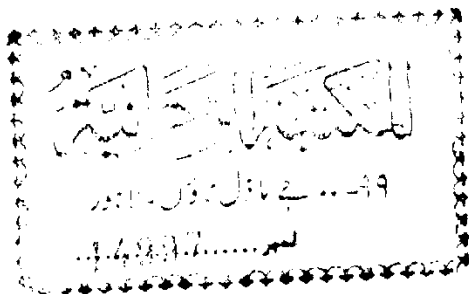 المكتبة الرحمانية
۹۹ - .. جے ماڈل ٹاؤن - لاہور
نمبر